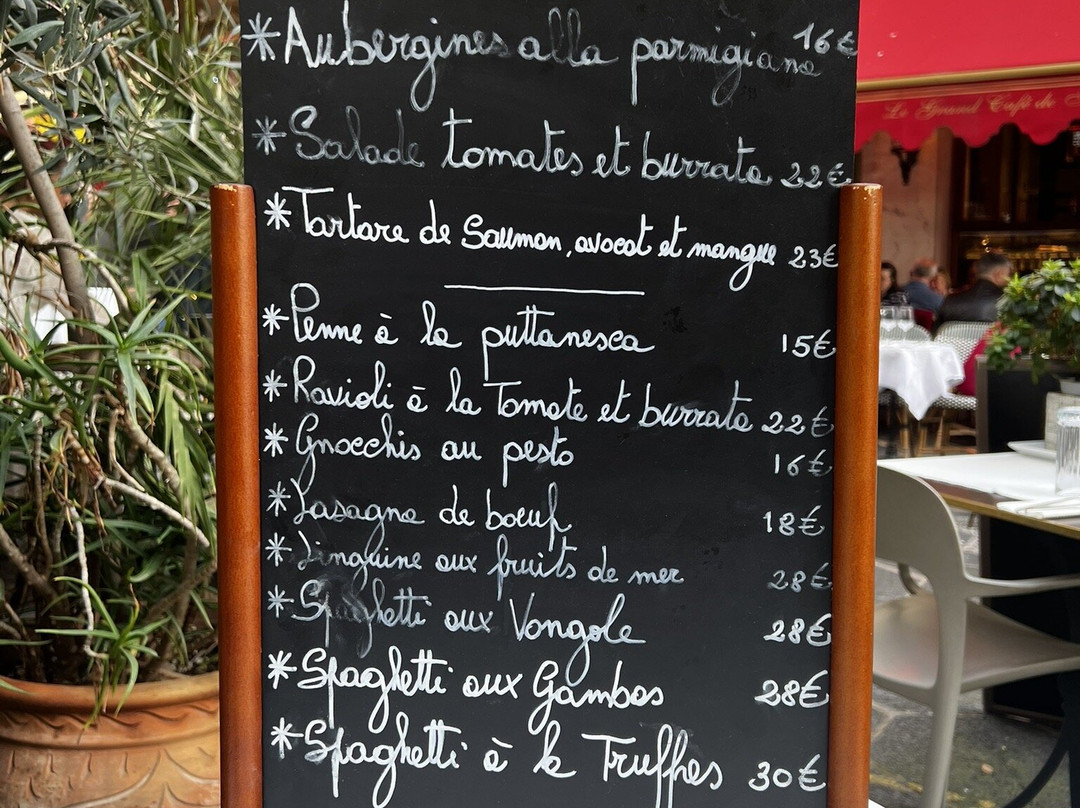 * Aubergines alla parmigiana 16€
* Salade tomates et burrata 22€
* Tartare de Saumon, avocat et mangue 23€
* Penne à la puttanesca 15€
* Ravioli à la Tomate et burrata 22€
* Gnocchis au pesto 16€
* Lasagne de boeuf 18€
* Linguine aux fruits de mer 28€
* Spaghetti aux Vongole 28€
* Spaghetti aux Gambas 28€
* Spaghetti à la Truffes 30€
Le Grand Café de